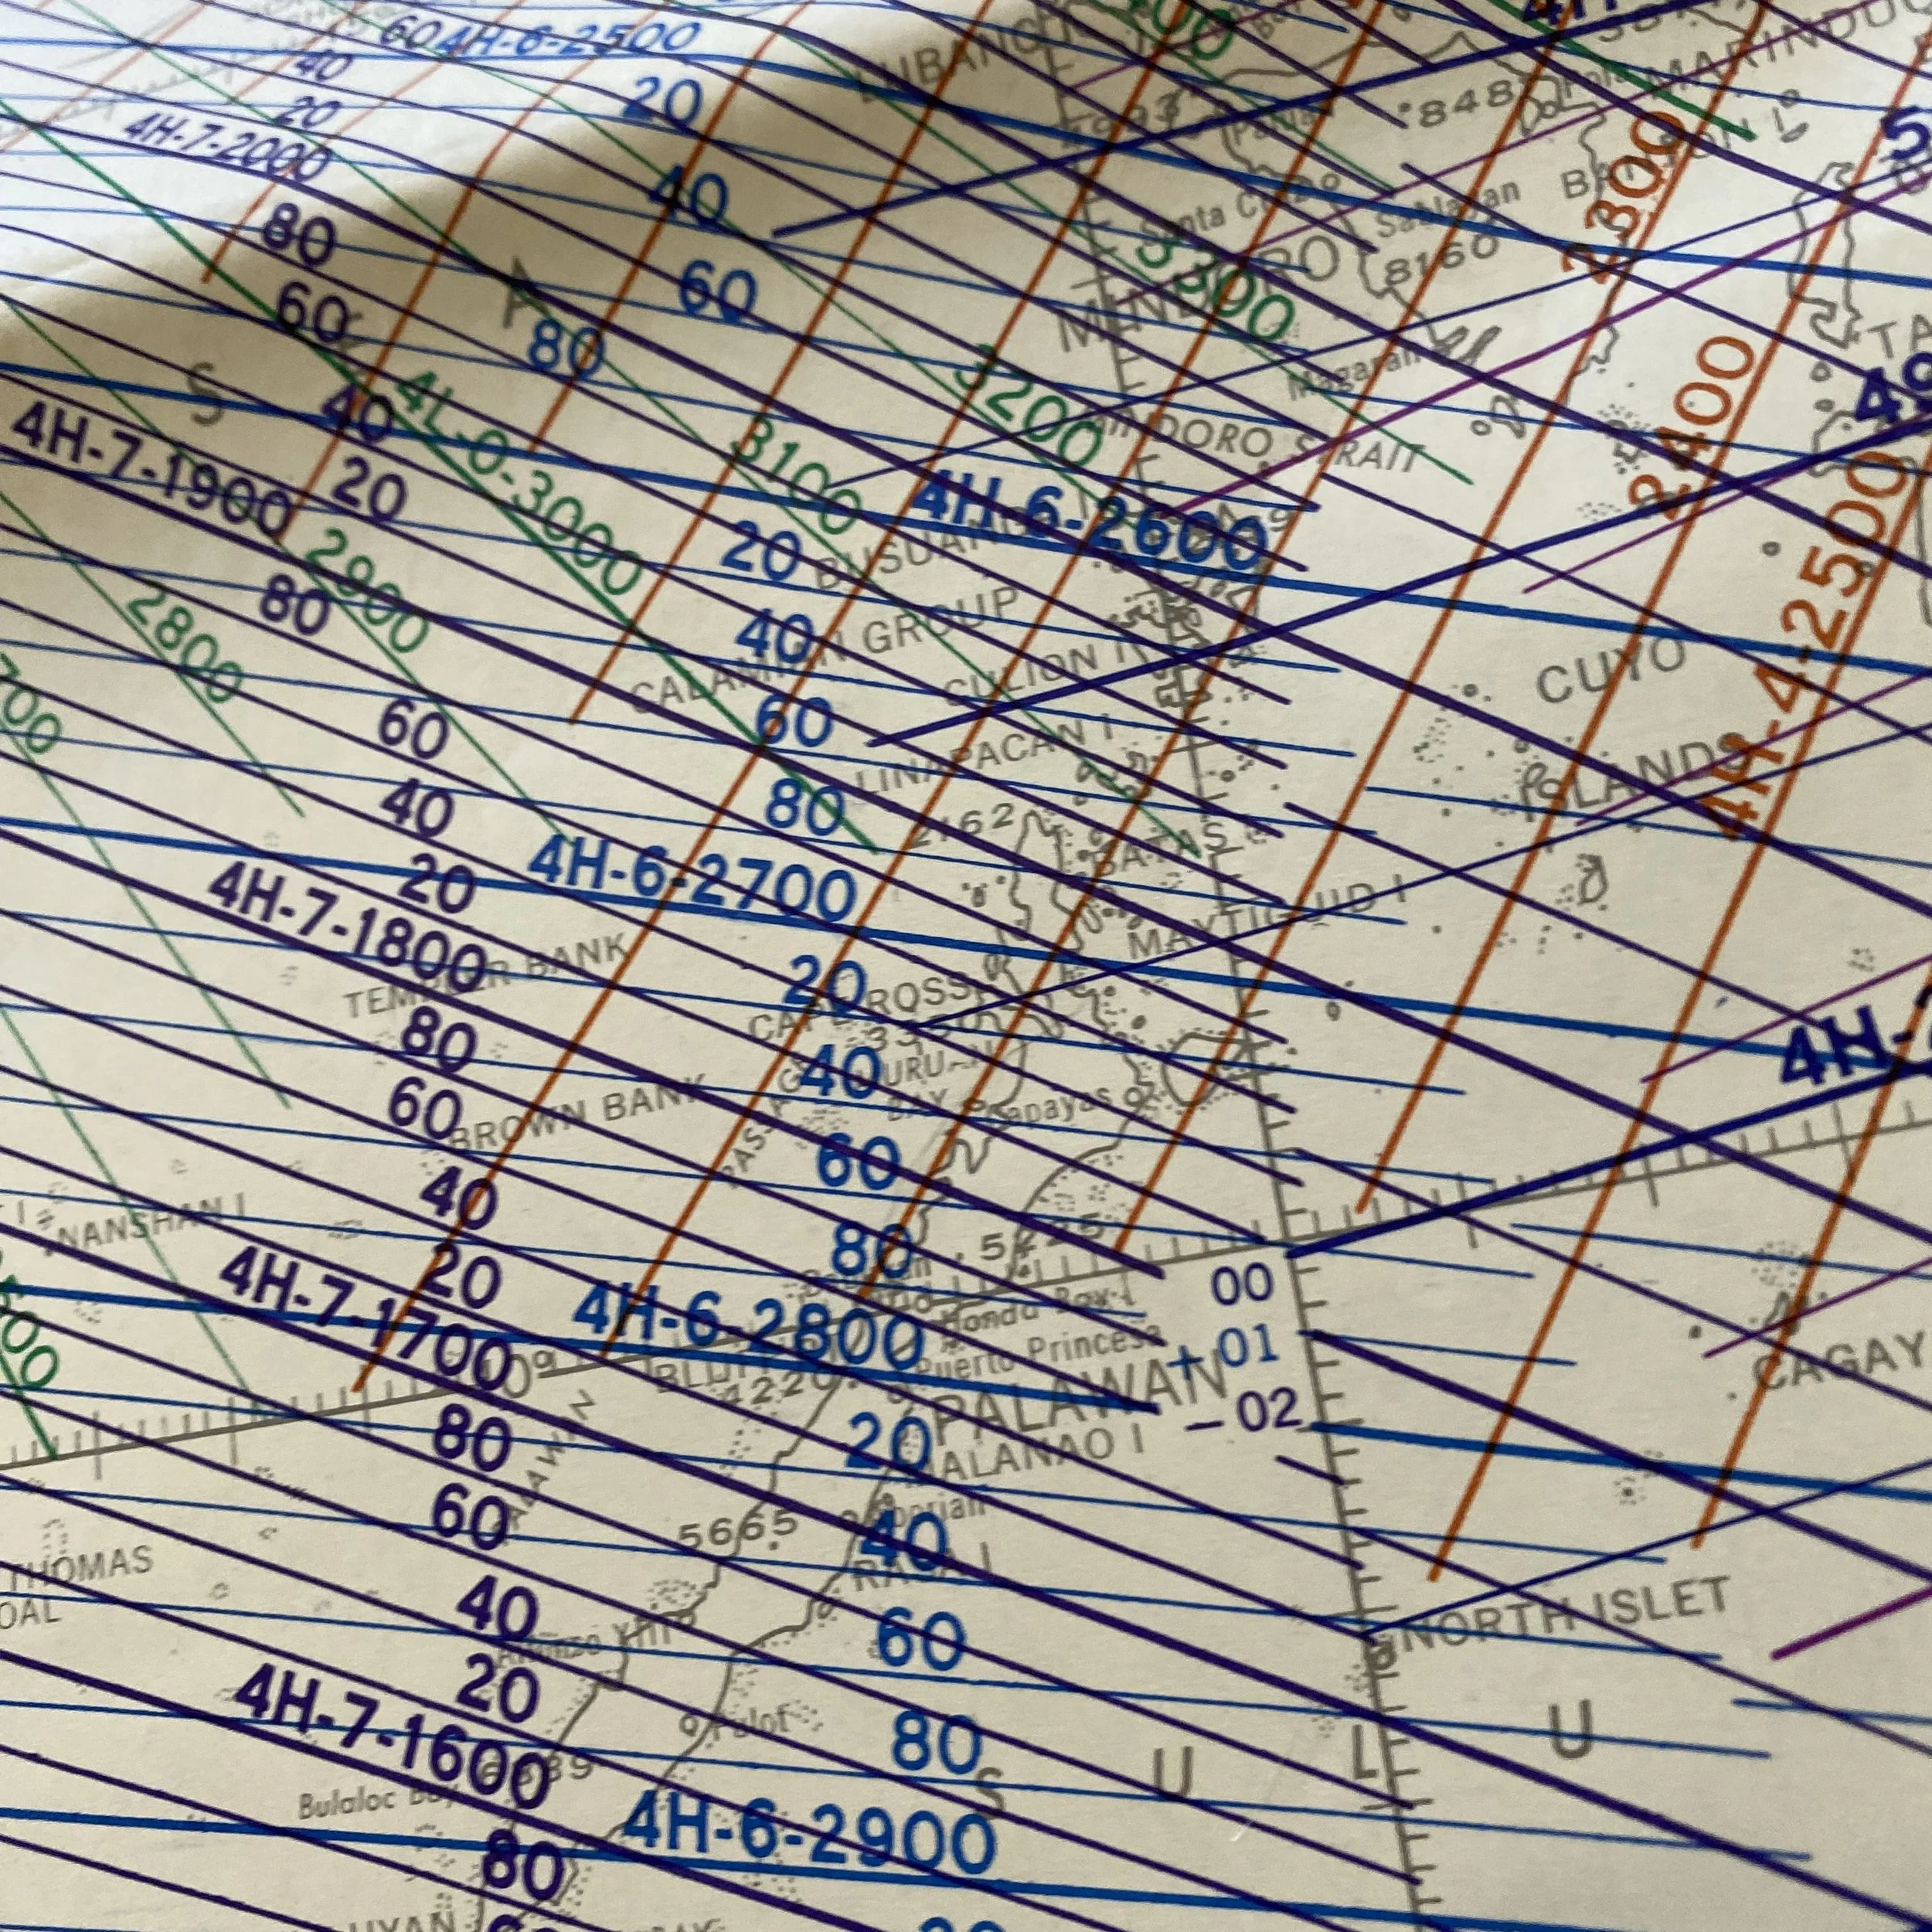 60 4H-6-2500
LUBANG
40
20
20
848
MARINDUQ
4H-7-2000
40
Santa Cruz
Sablayan
2300
80
60
MINDORO
8160
3300
60
80
Magaran
S
40
4L-0-3000
3200
MINDORO STRAIT
2400
49
4H-7-1900
20
3100
4H-6-2600
2900
20
BUSUANGA
80
2800
40
CALAMIAN GROUP
CULION I
CUYO
4H-4-2500
60
60
LINAPACAN I
ISLANDS
40
80
2162
BATAS I
20
4H-6-2700
4H-7-1800
MAYTIGUID I
TEMPLER BANK
20
CAPE ROSS
4H-
80
40
BAY
60
BROWN BANK
60
40
NANSHAN I
80
5225
20
00
4H-7-1700
4H-6-2800
Honda Bay
+ 01
10°
Puerto Princesa
CAGAY
4220
PALAWAN
- 02
80
20
MALANAO I
60
5665
40
THOMAS
RASA I
OAL
40
60
NORTH ISLET
Alfonso XIII
20
4H-7-1600
Pulot
80
S U L U
Bulaloc Bay
4H-6-2900
80